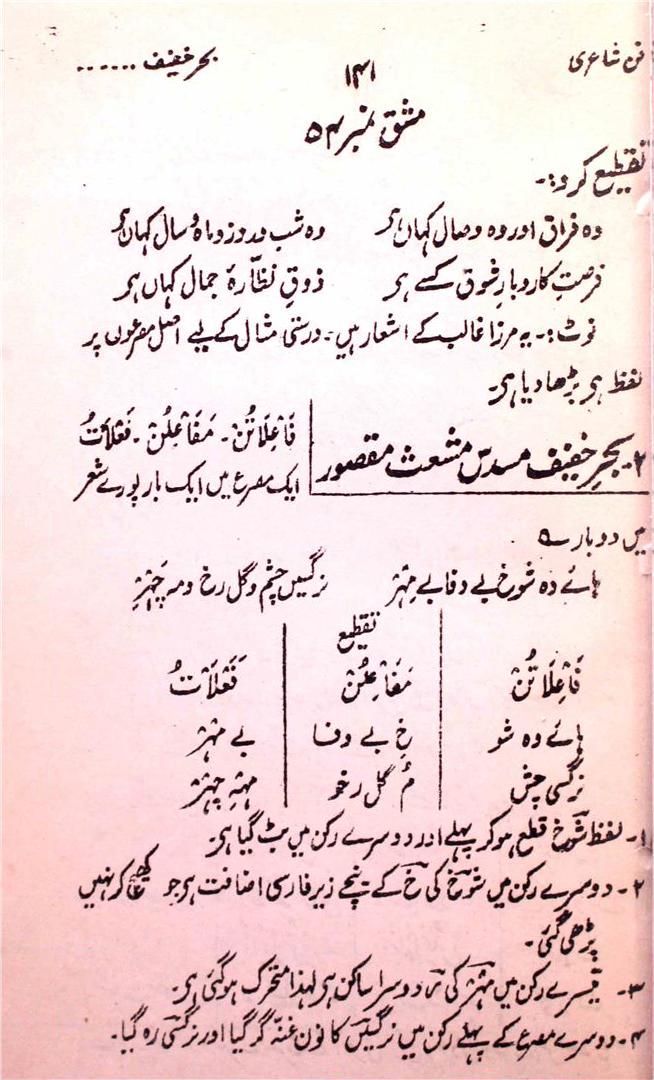 فن شاعری ۱۴۱ بحر خفیف ......
مشق نمبر ۵۴
تقطیع کرو :۔
وہ فراق اور وہ وصال کہاں ہَر وہ شب و روز و ماہ و سال کہاں ہَر
فرصتِ کاروبارِ شوق کسے ہر ذوقِ نظّارۂ جمال کہاں ہر
نوٹ :۔ یہ مرزا غالب کے اشعار ہیں۔ درستی مثال کے لیے اصل مصرعوں پر
لفظ ہر بڑھا دیا ہر۔
۲۔ بحرِ خفیف مسدّس مشعث مقصور فَاعِلَاتُنْ۔ مَفَاعِلُنْ۔ فَعْلَاتُ
ایک مصرع میں ایک بار پورے شعر
میں دو بار ے
ہائے وہ شوخِ بے وفا بے مِہْرْ نرگسیں چشم و گل رخ و مہ چَہْرْ
تقطیع
فَاعِلَاتُنْ مَفَاعِلُنْ فَعْلَاتُ
ہائے وہ شو خِ بے وفا بے مہْرْ
نرگسی چش مُ گل رخو مہہِ چہْرْ
۱۔ لفظ شوخ قطع ہو کر پہلے اور دوسرے رکن میں بٹ گیا ہر۔
۲۔ دوسرے رکن میں شوخِ کی خ کے نیچے زیر فارسی اضافت ہر جو کھینچ کر نہیں
پڑھی گئی۔
۳۔ تیسرے رکن میں مہْرْ کی ر دوسرا ساکن ہر لہٰذا متحرک ہو گئی ہر۔
۴۔ دوسرے مصرع کے پہلے رکن میں نرگسیں کا نون غنّہ گر گیا اور نرگسی رہ گیا۔